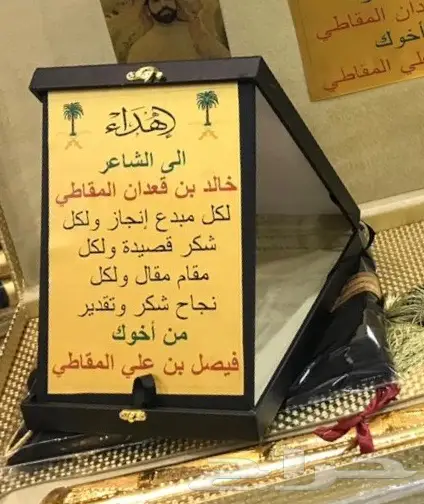 إهداء
الى الشاعر
خالد بن قعدان المقاطي
لكل مبدع إنجاز ولكل
شكر قصيدة ولكل
مقام مقال ولكل
نجاح شكر وتقدير
من أخوك
فيصل بن علي المقاطي
دان المقاطي
أخوك
علي المقاطي
حراج